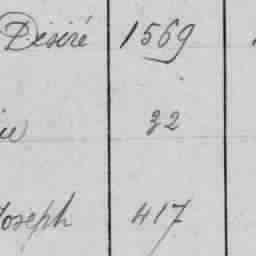 Désiré 1569
32
Joseph 417